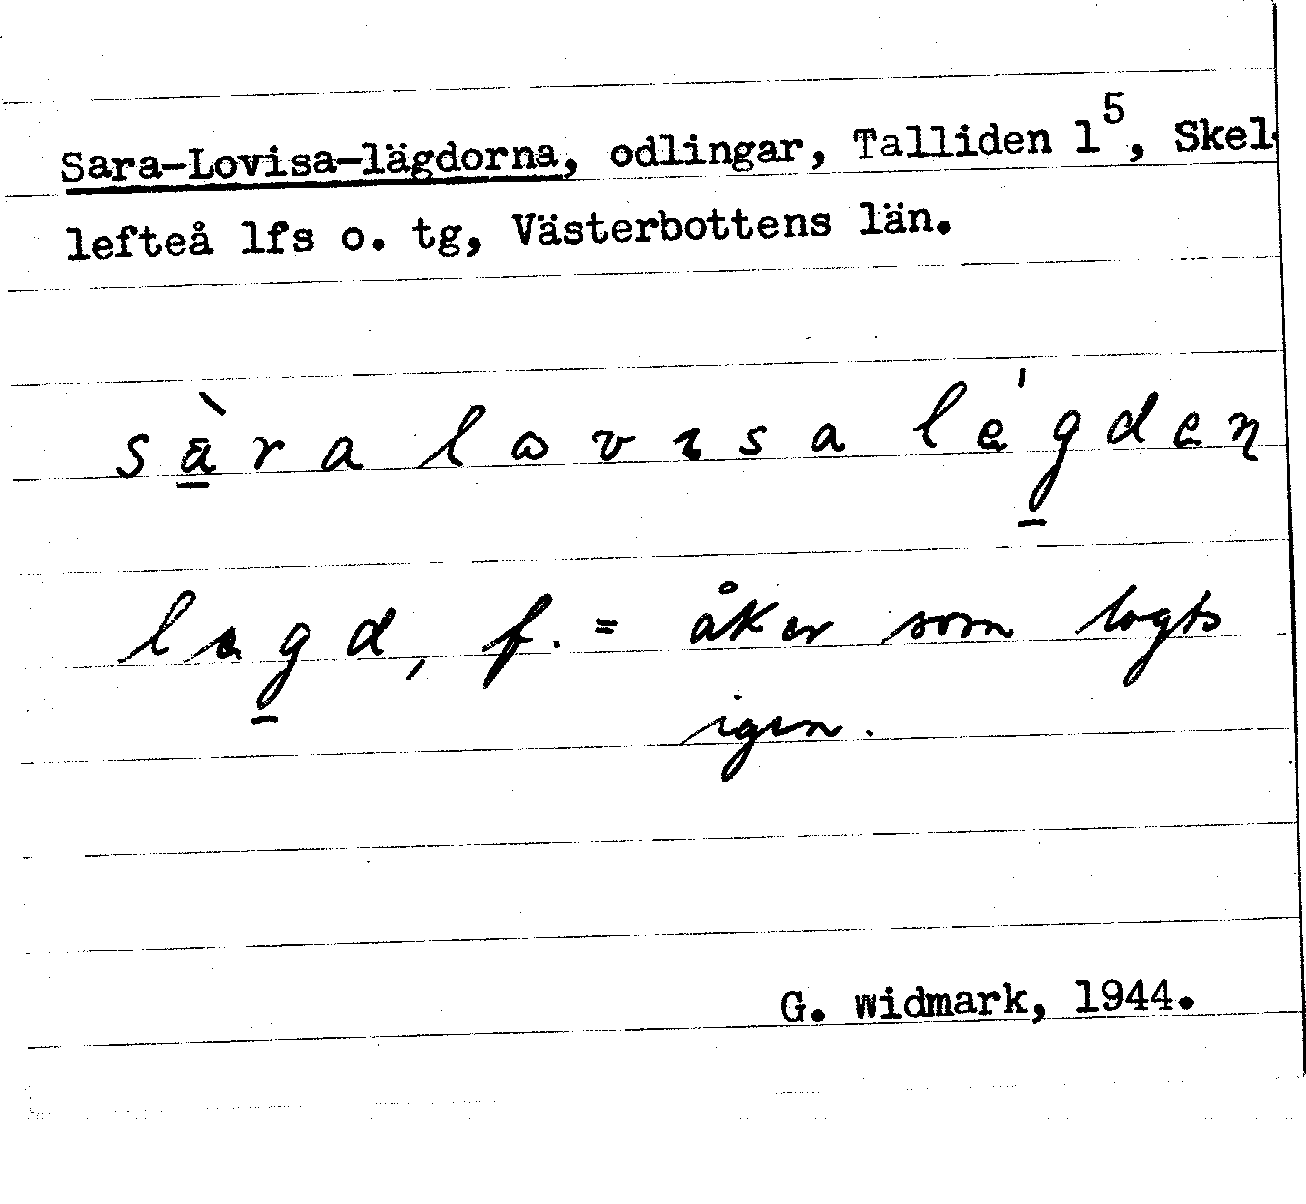 Sara-Lovisa-lägdorna, odlingar, Talliden 1⁵, Skel-
lefteå lfs o. tg, Västerbottens län.
sàra lovisa légden
legd, f. = åker som lagts
igen.
G. Widmark, 1944.